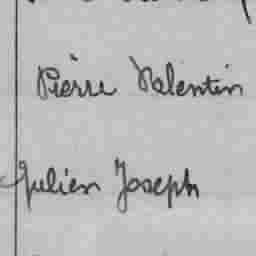 Pierre Valentin
Julien Joseph